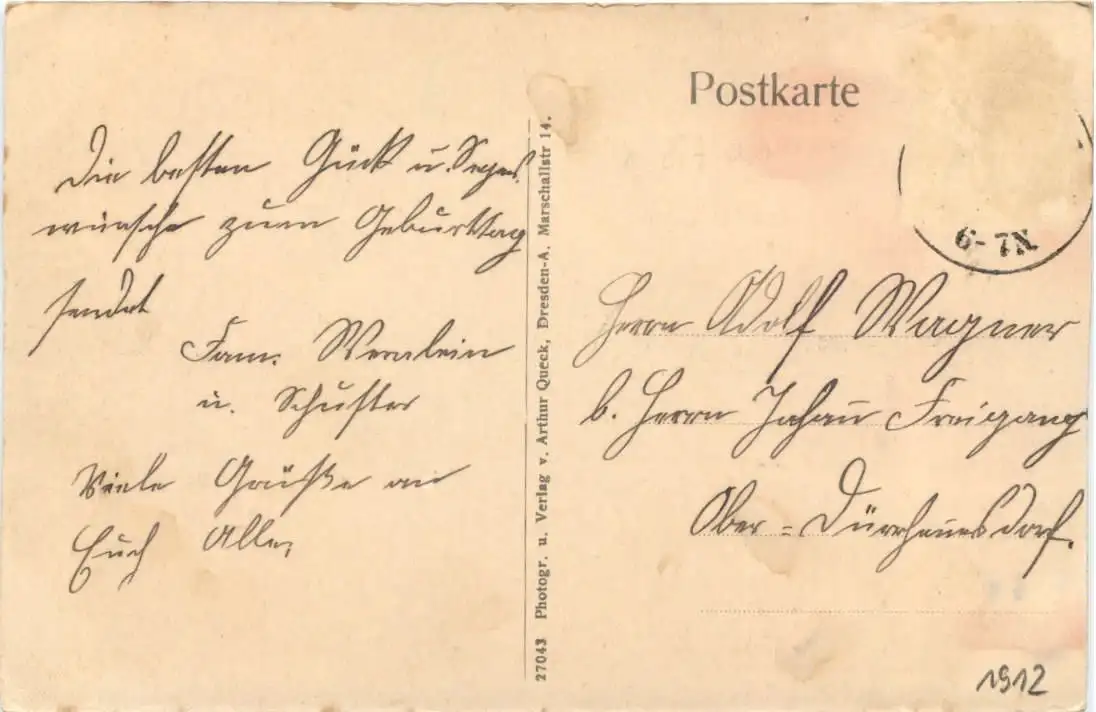 Die besten Glück u. Segens
wünsche zum Geburttag
sendet
Fam. Wernlein
u. Schuster
Viele Grüße an
Euch Alle,
27043 Photogr. u. Verlag v. Arthur Queck, Dresden-A. Marschallstr 14.
Postkarte
6-7N.
Herrn Adolf Wagner
b. Herrn Freigang
Ober=Dürrhennersdorf.
1912